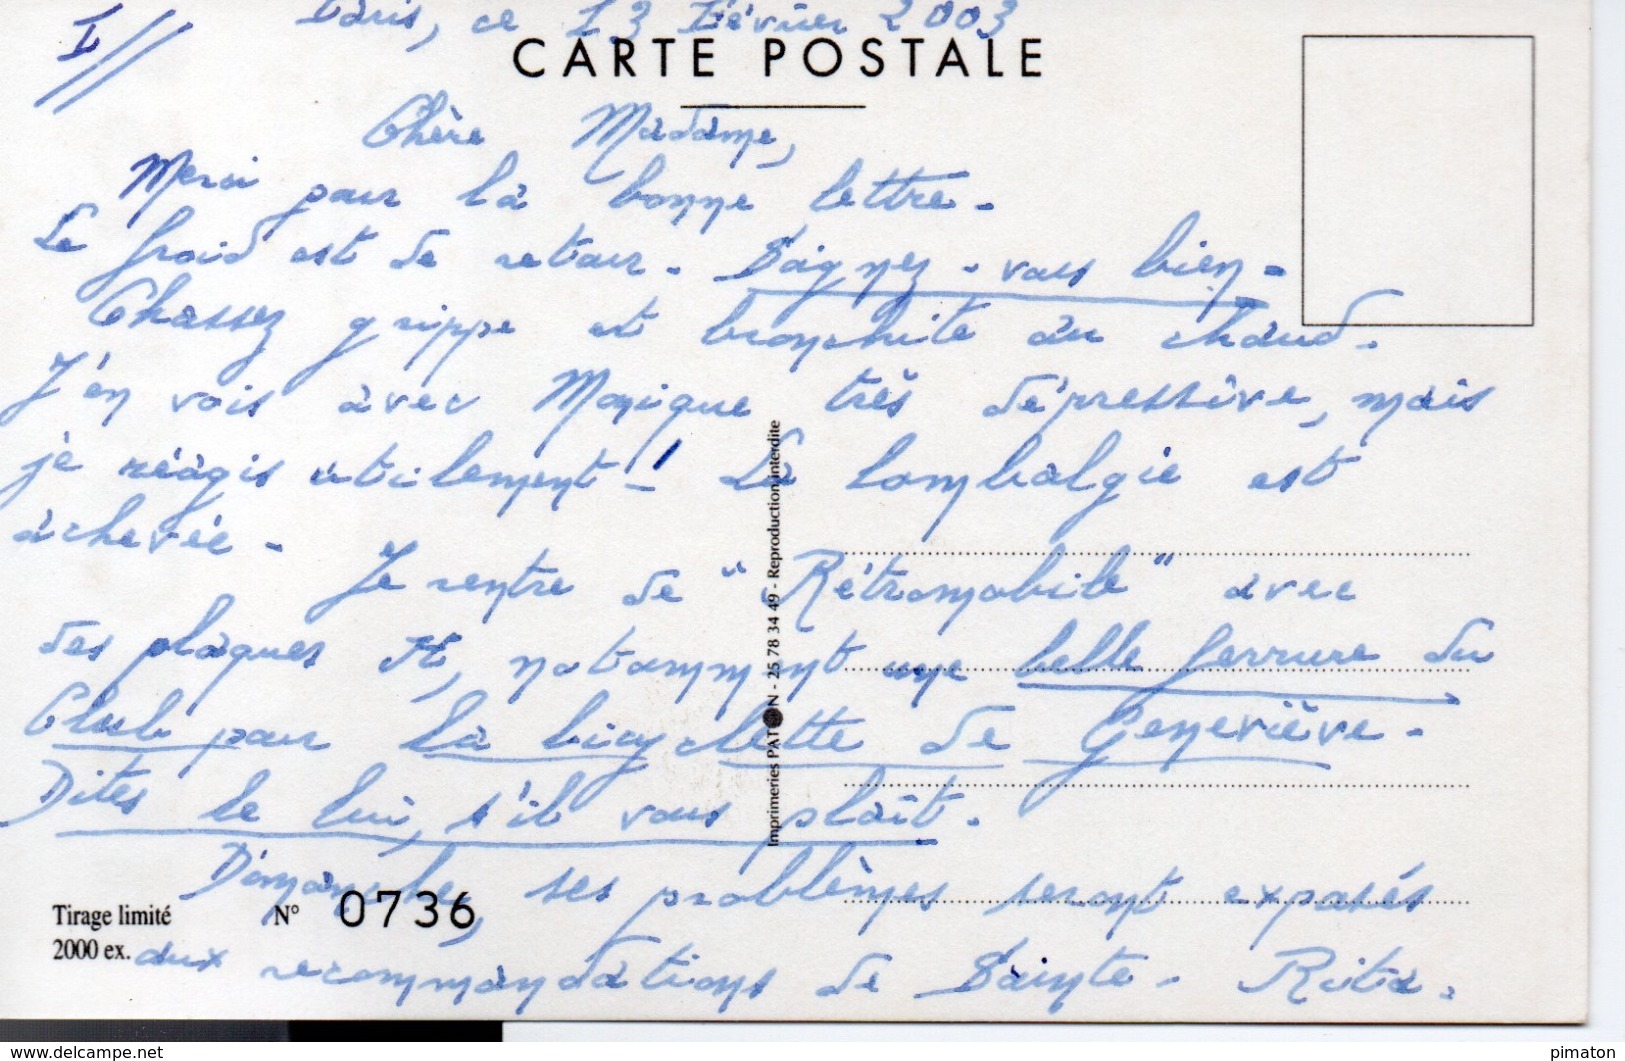 I//
Paris, ce 13 Février 2003
CARTE POSTALE
Chère Madame,
Merci pour la bonne lettre.
Le froid est de retour. Soignez-vous bien.
Chassez grippe et bronchite au chaud.
J'en vois avec Monique très dépressive, mais
je réagis utilement! La lombalgie est
achevée. Je rentre de "Rétromobile" avec
des plaques et, notamment une belle ferrure du
Club pour la bicyclette de Geneviève.
Dites le lui, s'il vous plaît.
Dimanche, ses problèmes seront exposés
aux recommandations de Sainte-Rita.
Tirage limité
2000 ex.
N° 0736
Imprimeries PATON - 25 78 34 49 - Reproduction interdite
www.delcampe.net
pimaton